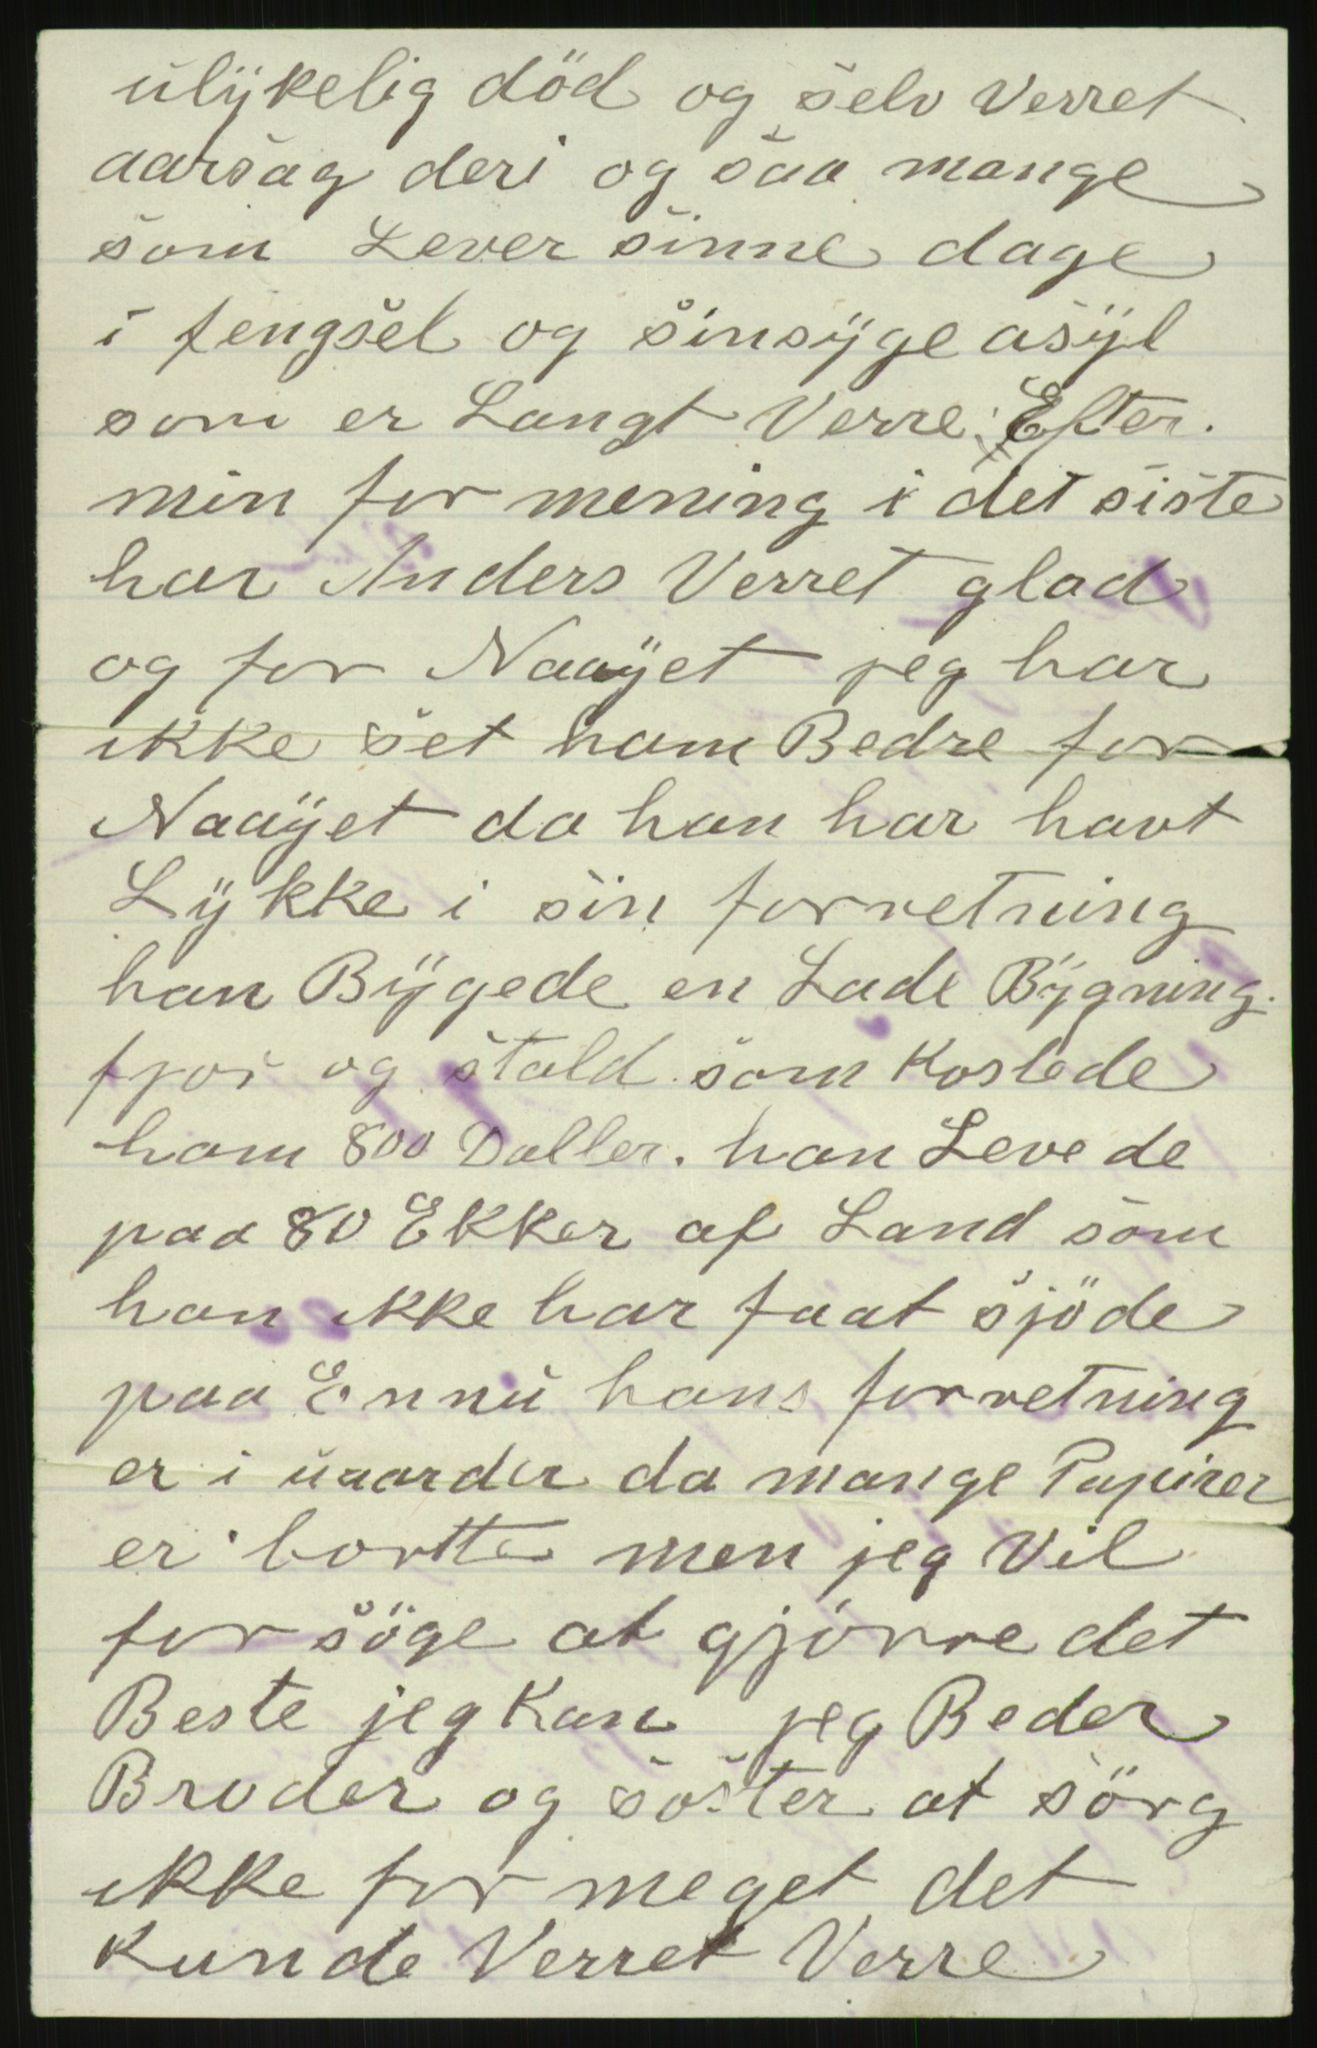 ulykelig död og selv Verret
aarsag deri og saa mange
som Lever sinne dage
i fengsel og sinsyge asyl
som er Langt Verre. Efter
min for mening i det siste
har Anders Verret glad
og for Naayet jeg har
ikke set ham Bedre for
Naayet da han har havt
Lykke i sin forretning
han Bygede en Lade Bygning.
fjos og stald som Kostede
ham 800 Daller. han Leve de
paa 80 Ekker af Land som
han ikke har faat sjöde
paa Ennu hans forretning
er i uaarder da mange Papirer
er bortte men jeg Vil
for söge at gjörre det
Beste jeg Kan jeg Beder
Broder og söster at sörg
ikke for meget det
Kunde Verret Verre